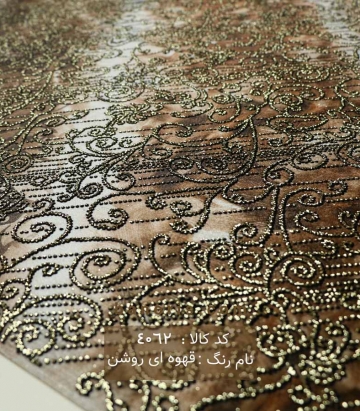 کد کالا : ٤٠٦٢
نام رنگ : قهوه ای روشن